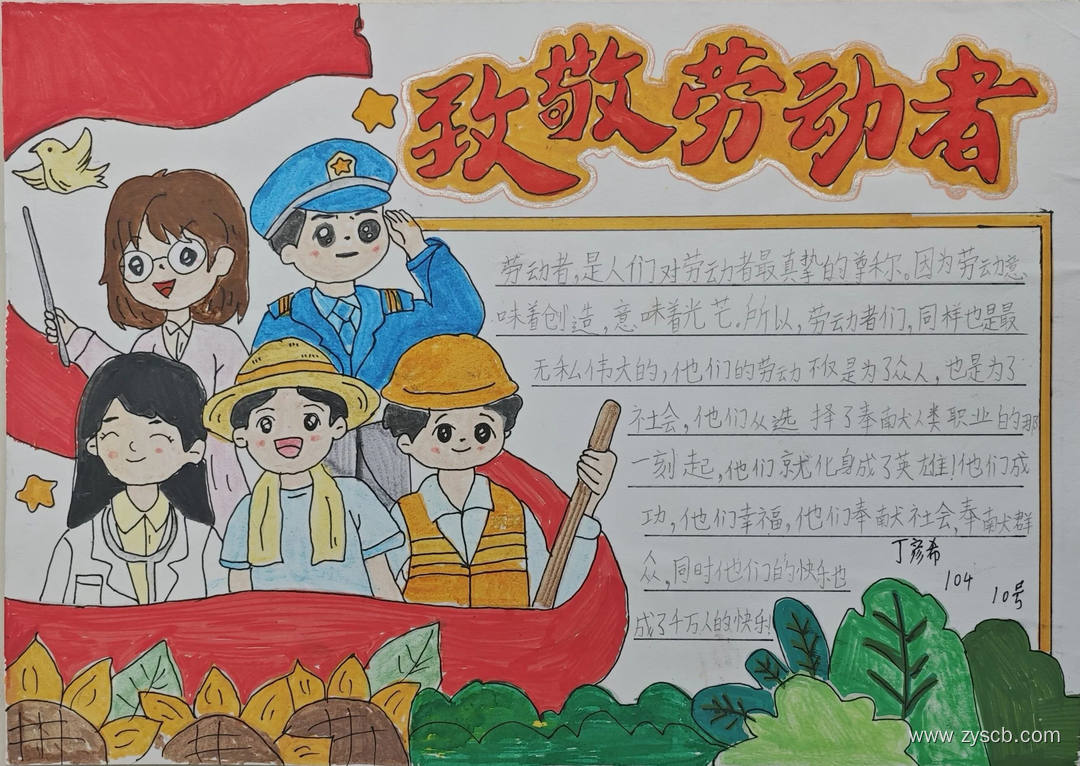 致敬劳动者
劳动者,是人们对劳动者最真挚的尊称。因为劳动意
味着创造,意味着光芒。所以,劳动者们,同样也是最
无私伟大的,他们的劳动不仅是为了众人,也是为了
社会,他们从选择了奉献人类职业的那
一刻起,他们就化身成了英雄!他们成
功,他们幸福,他们奉献社会,奉献群
众,同时他们的快乐也
成了千万人的快乐!
丁彦希
104
10号
www.zyscb.com